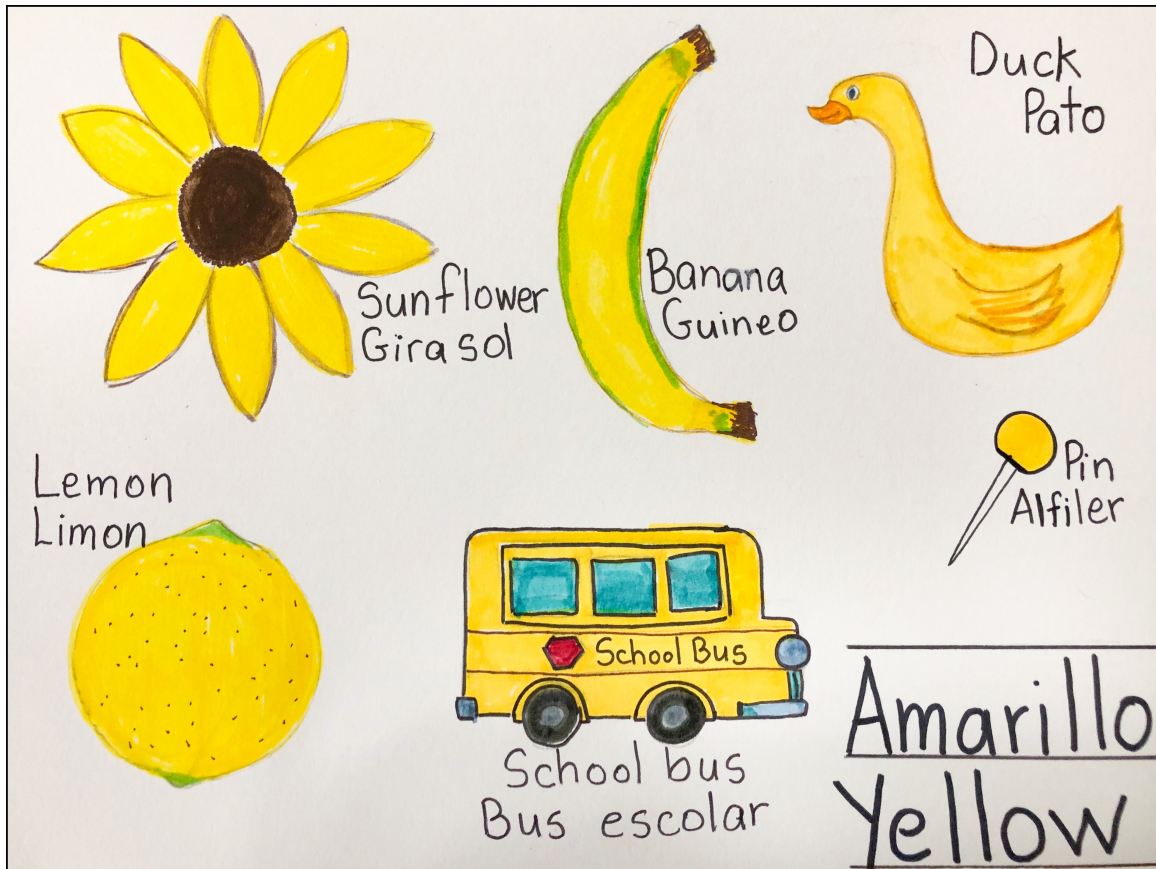 Duck
Pato
Sunflower
Girasol
Banana
Guineo
Lemon
Limon
Pin
Alfiler
School Bus
School bus
Bus escolar
Amarillo
Yellow